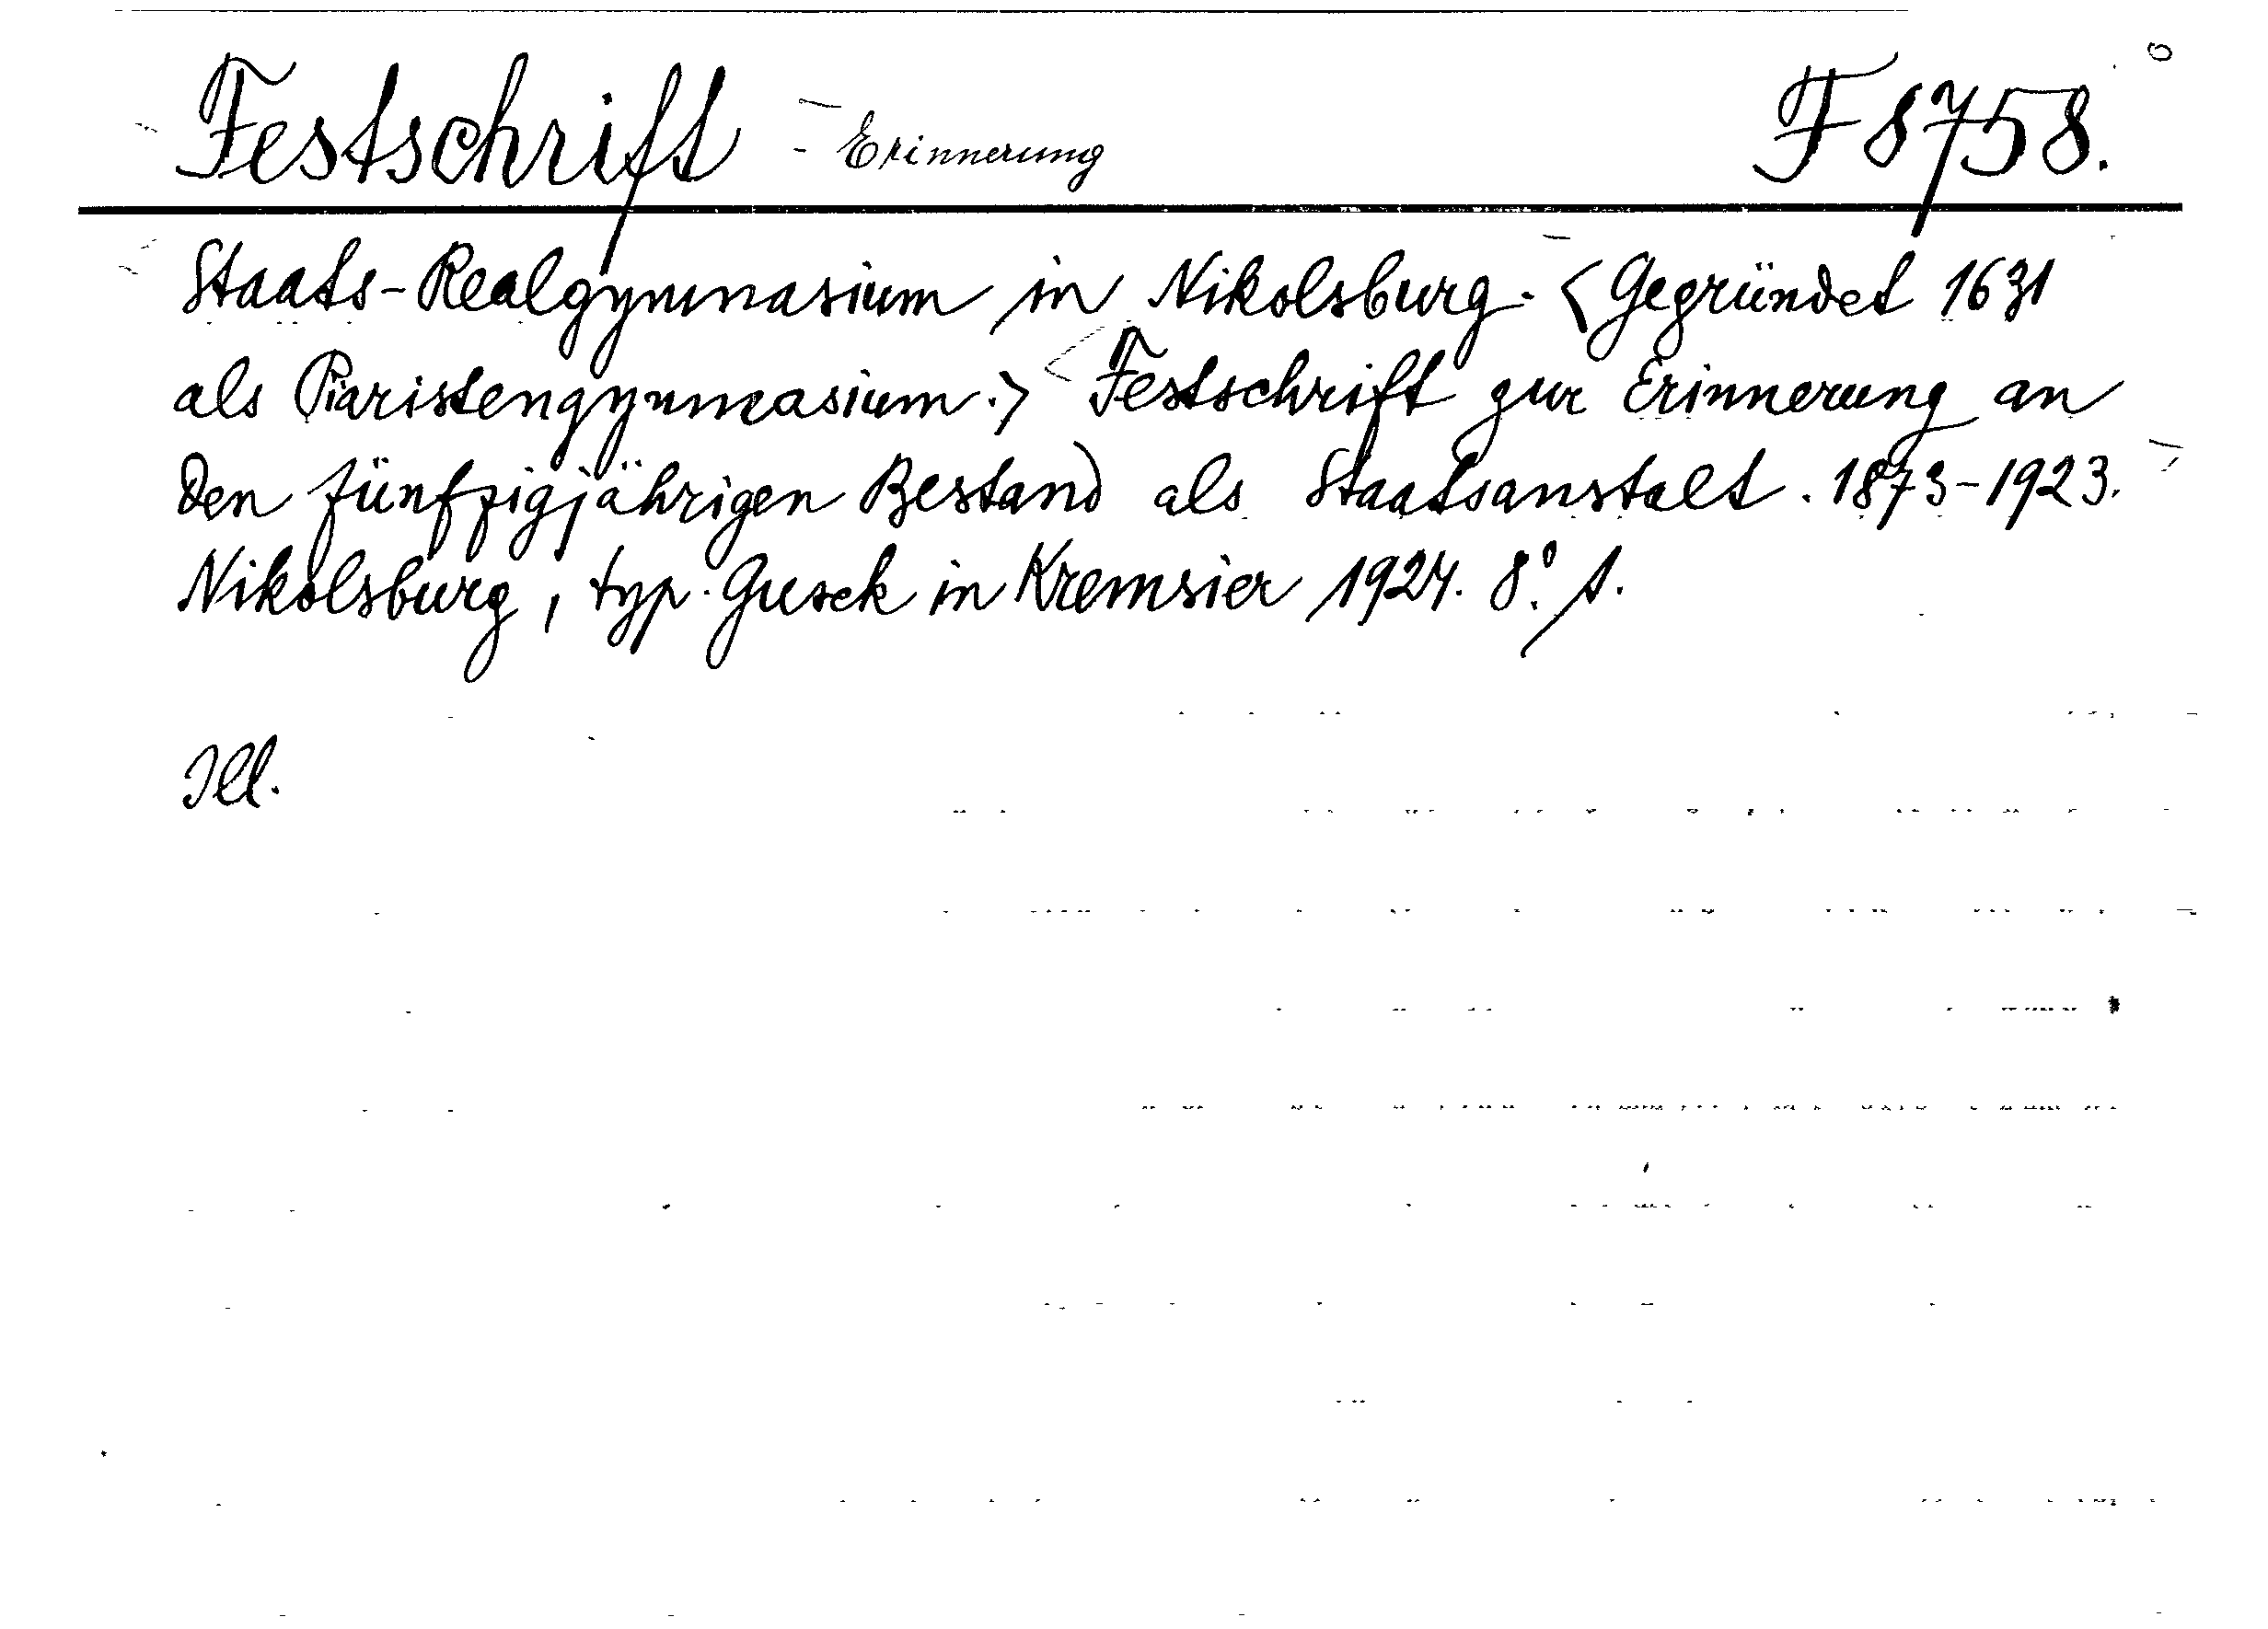 Festschrift - Erinnerung F 8758.
Staats-Realgymnasium in Nikolsburg. <Gegründet 1631
als Piaristengymnasium.> Festschrift zur Erinnerung an
den fünfzigjährigen Bestand als Staatsanstalt. 1873-1923.
Nikolsburg, typ. Gusek in Kremsier 1924. 8°.
Ill.